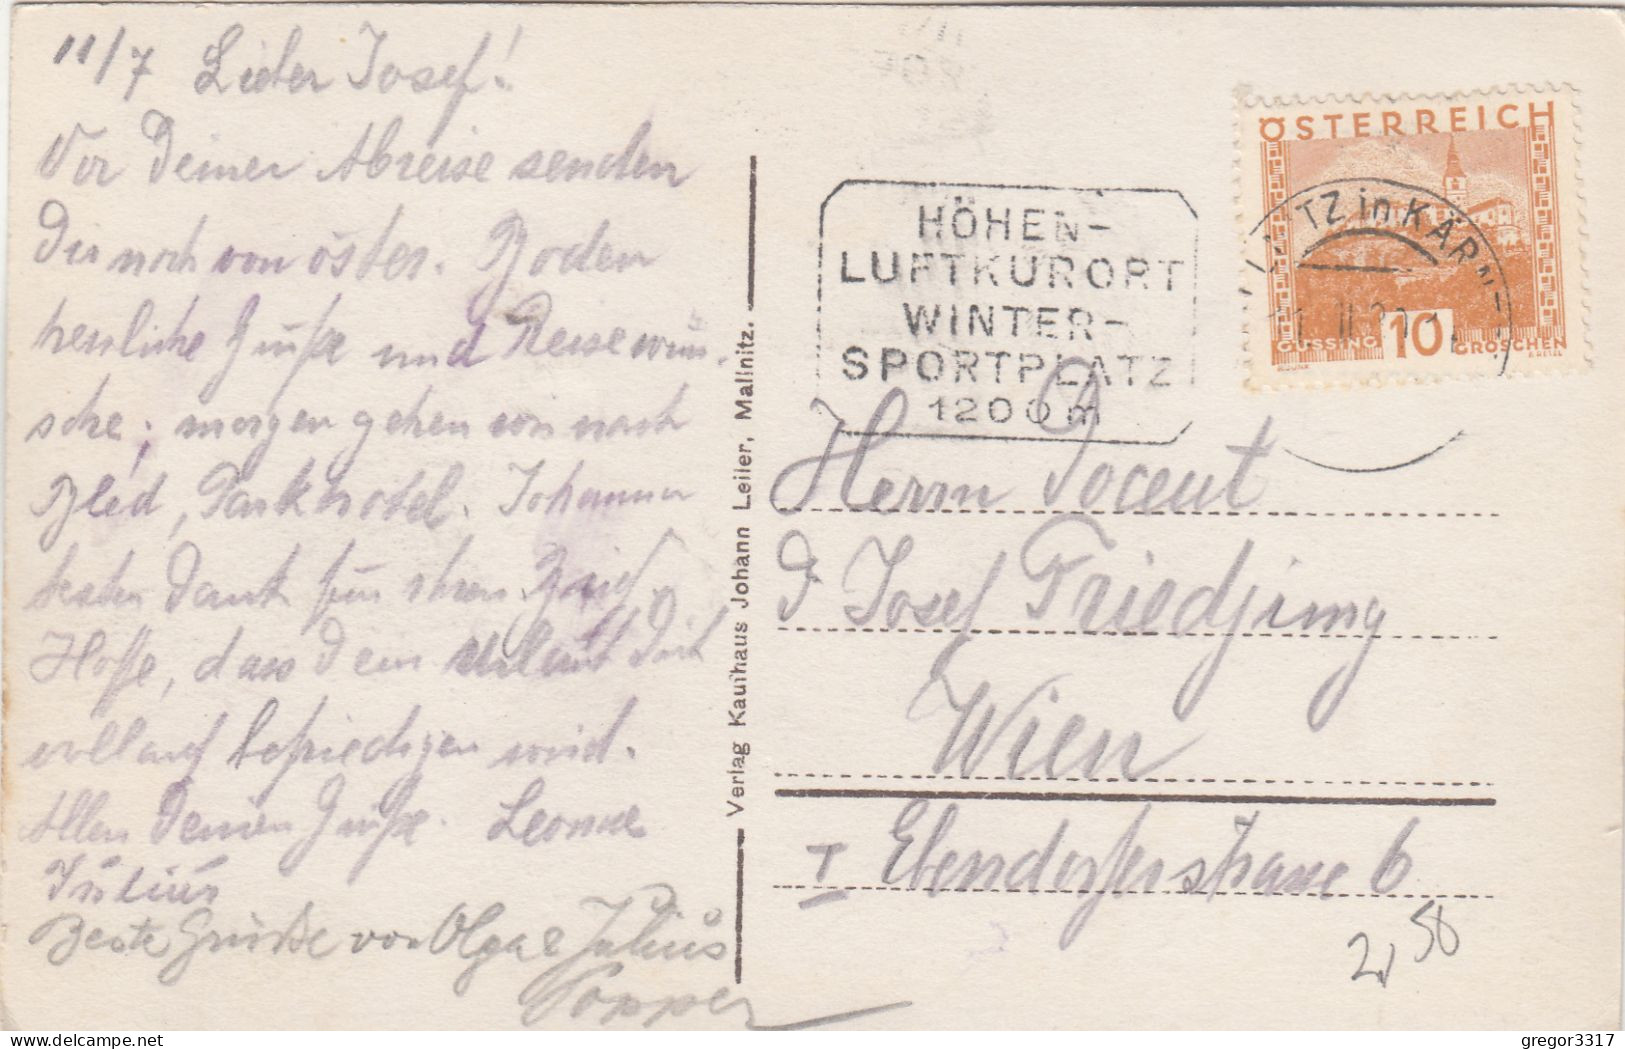 11/7 Lieber Josef!
Vor Deiner Abreise senden
Dir noch von öster. Boden
herzliche Grüße und Reisewün-
sche; morgen gehen wir nach
Bled, Parkhotel. Johanna
besten Dank für ihren Brief.
Hoffe, dass Dein Urlaub Dich
vollauf befriedigen wird.
Allen Deinen Grüße. Leonie
Julius
Beste Grüße von Olga & Julius
Popper
Verlag Kaufhaus Johann Leiler, Mallnitz.
HÖHEN-
LUFTKURORT
WINTER-
SPORTPLATZ
1200 m
ÖSTERREICH
TZ in KÄRN
GÜSSING 10 GROSCHEN
Herrn Docent
Dr Josef Friedjung
Wien
I Ebendorferstrasse 6
2,58
gregor3317